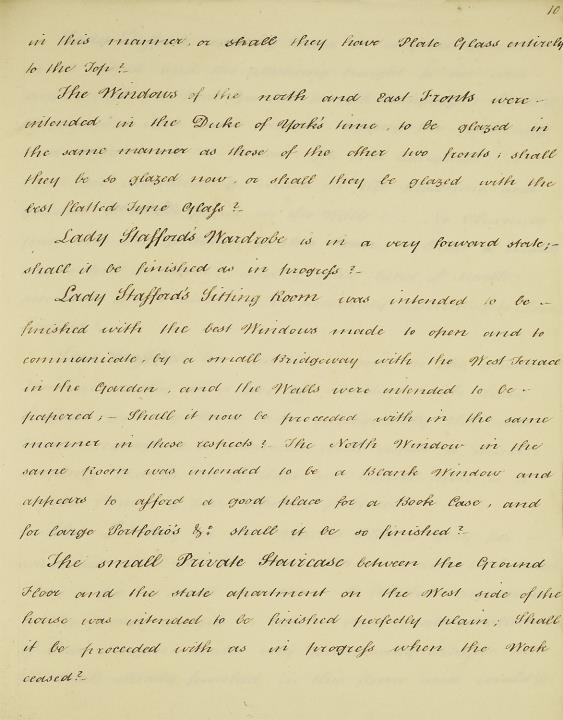 10
in this manner, or shall they have Plate Glass entirely
to the Top?—
The Windows of the north and East Fronts were –
intended in the Duke of York's time, to be glazed in
the same manner as those of the other two fronts; shall
they be so glazed now, or shall they be glazed with the
best flatted Tyne Glass?—
Lady Stafford's Wardrobe is in a very forward state;–
shall it be finished as in progress?—
Lady Stafford's Sitting Room was intended to be –
finished with the best Windows made to open and to
communicate, by a small Bridgeway with the West Terrace
in the Garden, and the Walls were intended to be –
papered;— Shall it now be proceeded with in the same
manner in these respects?— The North Window in the
same Room was intended to be a Blank Window and
appears to afford a good place for a Book Case, and
for large Portfolio's &c. shall it be so finished?—
The small Private Staircase between the Ground
Floor and the state apartment on the West side of the
house was intended to be finished perfectly plain; Shall
it be proceeded with as in progress when the Work
ceased?—